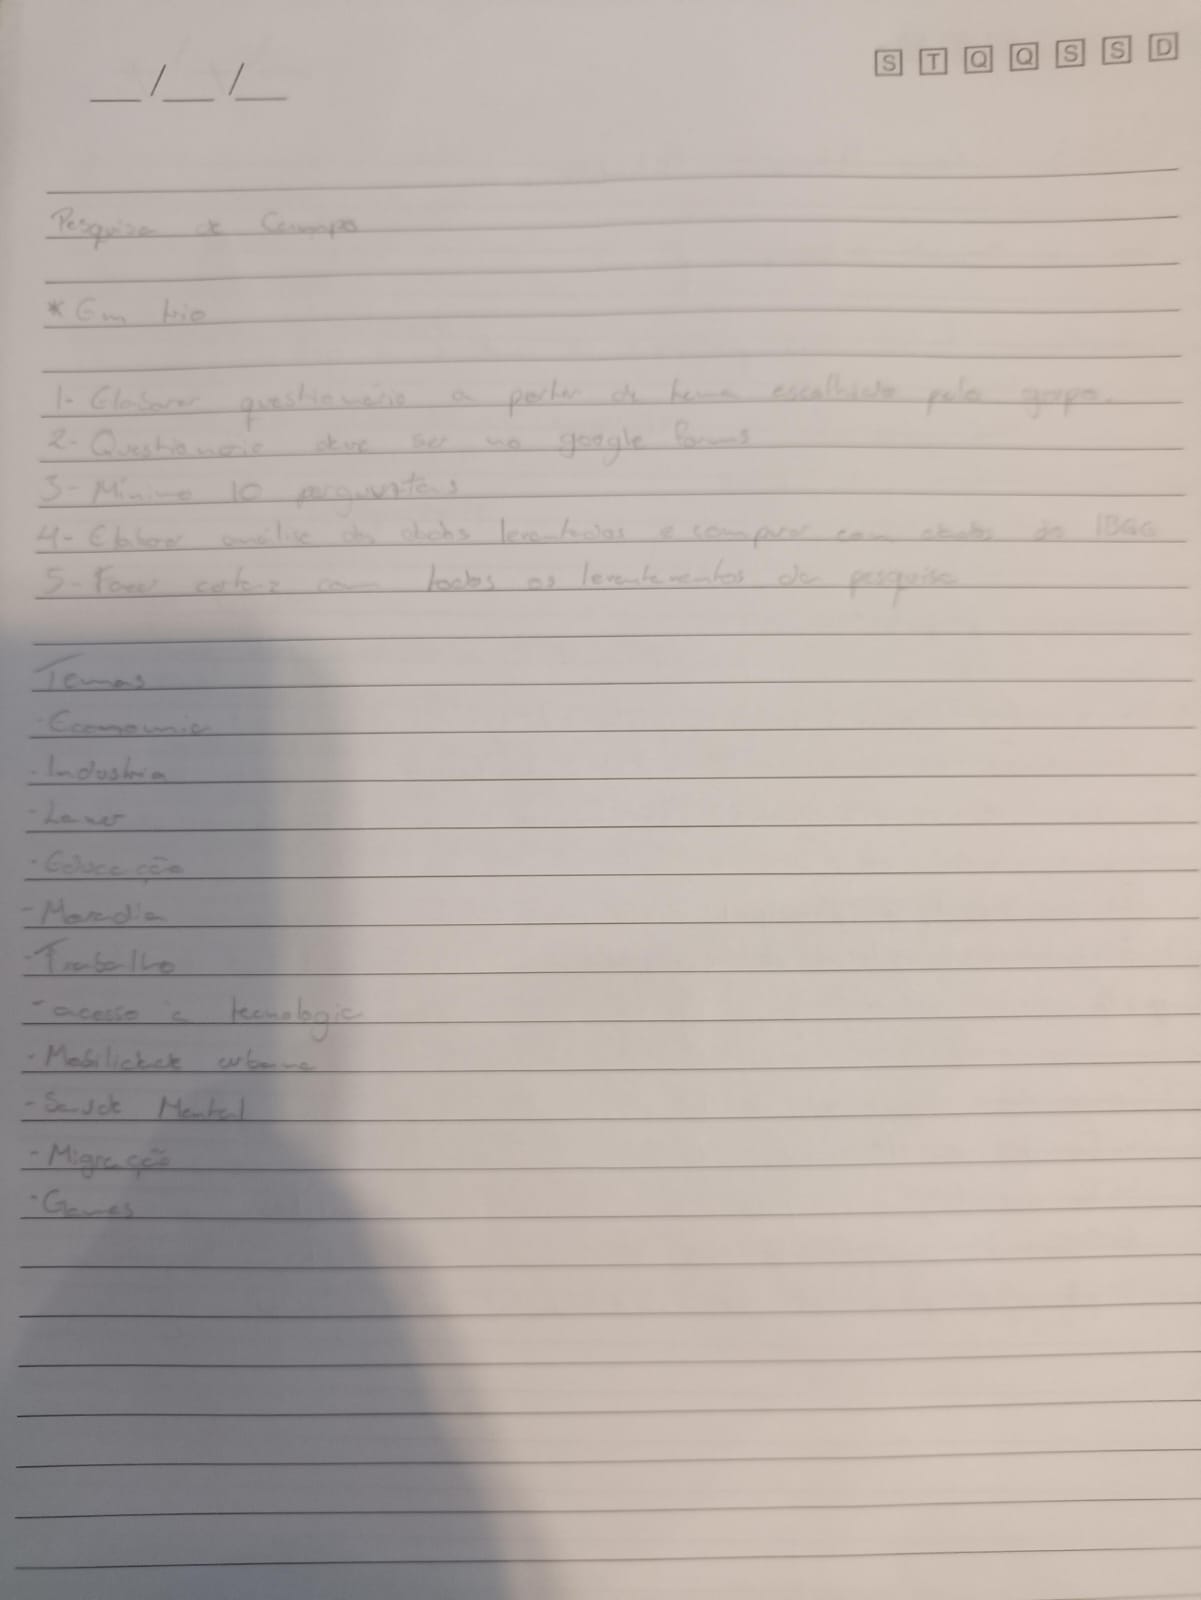 __/__/__
S T Q Q S S D
Pesquisa de Campo
* Em trio
1- Elaborar questionário a partir de tema escolhido pelo grupo.
2- Questionário deve ser no google forms
3- Mínimo 10 perguntas
4- Elaborar análise dos dados levantados e comparar com dados do IBGE
5- Fazer cartaz com todos os levantamentos da pesquisa
Temas
- Economia
- Industria
- Lazer
- Educação
- Moradia
- Trabalho
- acesso à tecnologia
- Mobilidade urbana
- Saude Mental
- Migração
- Games